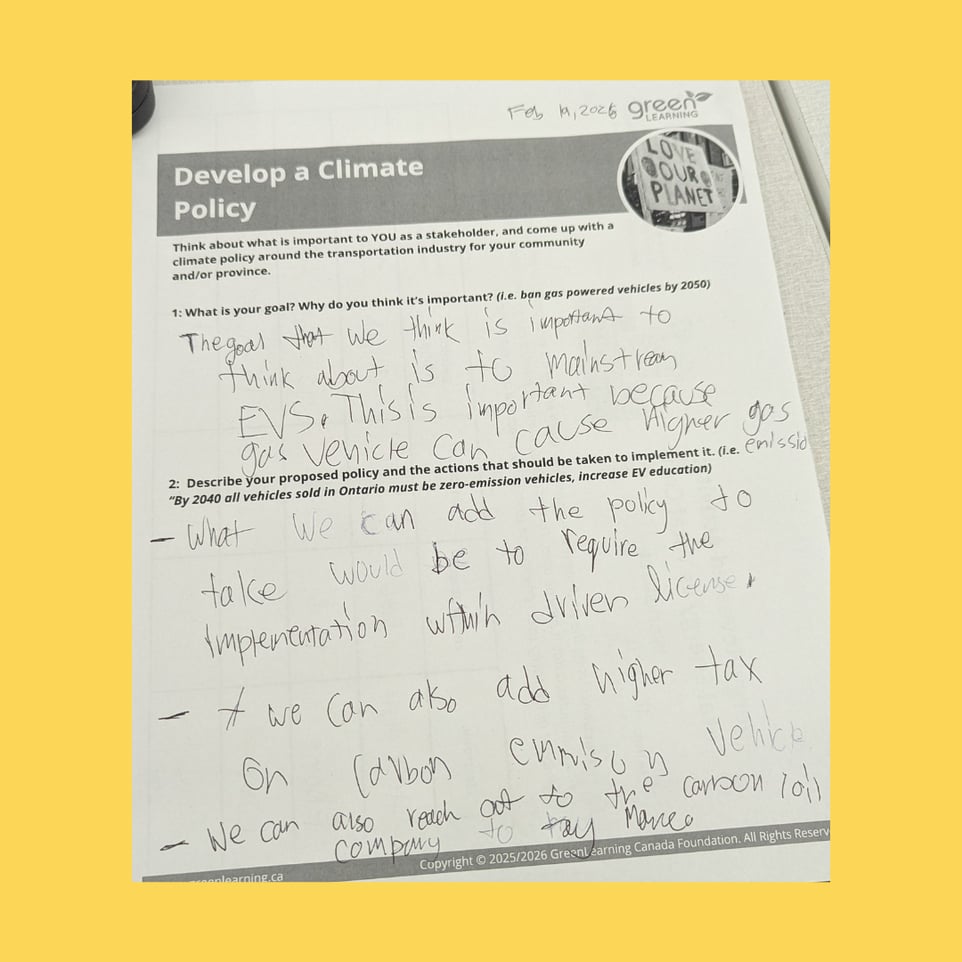 Feb 19, 2026
green
LEARNING
LOVE
OUR
PLANET
Develop a Climate
Policy
Think about what is important to YOU as a stakeholder, and come up with a
climate policy around the transportation industry for your community
and/or province.
1: What is your goal? Why do you think it's important? (i.e. ban gas powered vehicles by 2050)
The goal that we think is important to
think about is to mainstream
EVS. This is important because
gas vehicle can cause Higher gas
emissio
2: Describe your proposed policy and the actions that should be taken to implement it. (i.e.
"By 2040 all vehicles sold in Ontario must be zero-emission vehicles, increase EV education)
- What we can add the policy to
take would be to require the
implementation within driven license.
- we can also add higher tax
on carbon emmision vehicle
- We can also reach out to the carbon / oil
company to
greenlearning.ca
Copyright © 2025/2026 GreenLearning Canada Foundation. All Rights Reserv